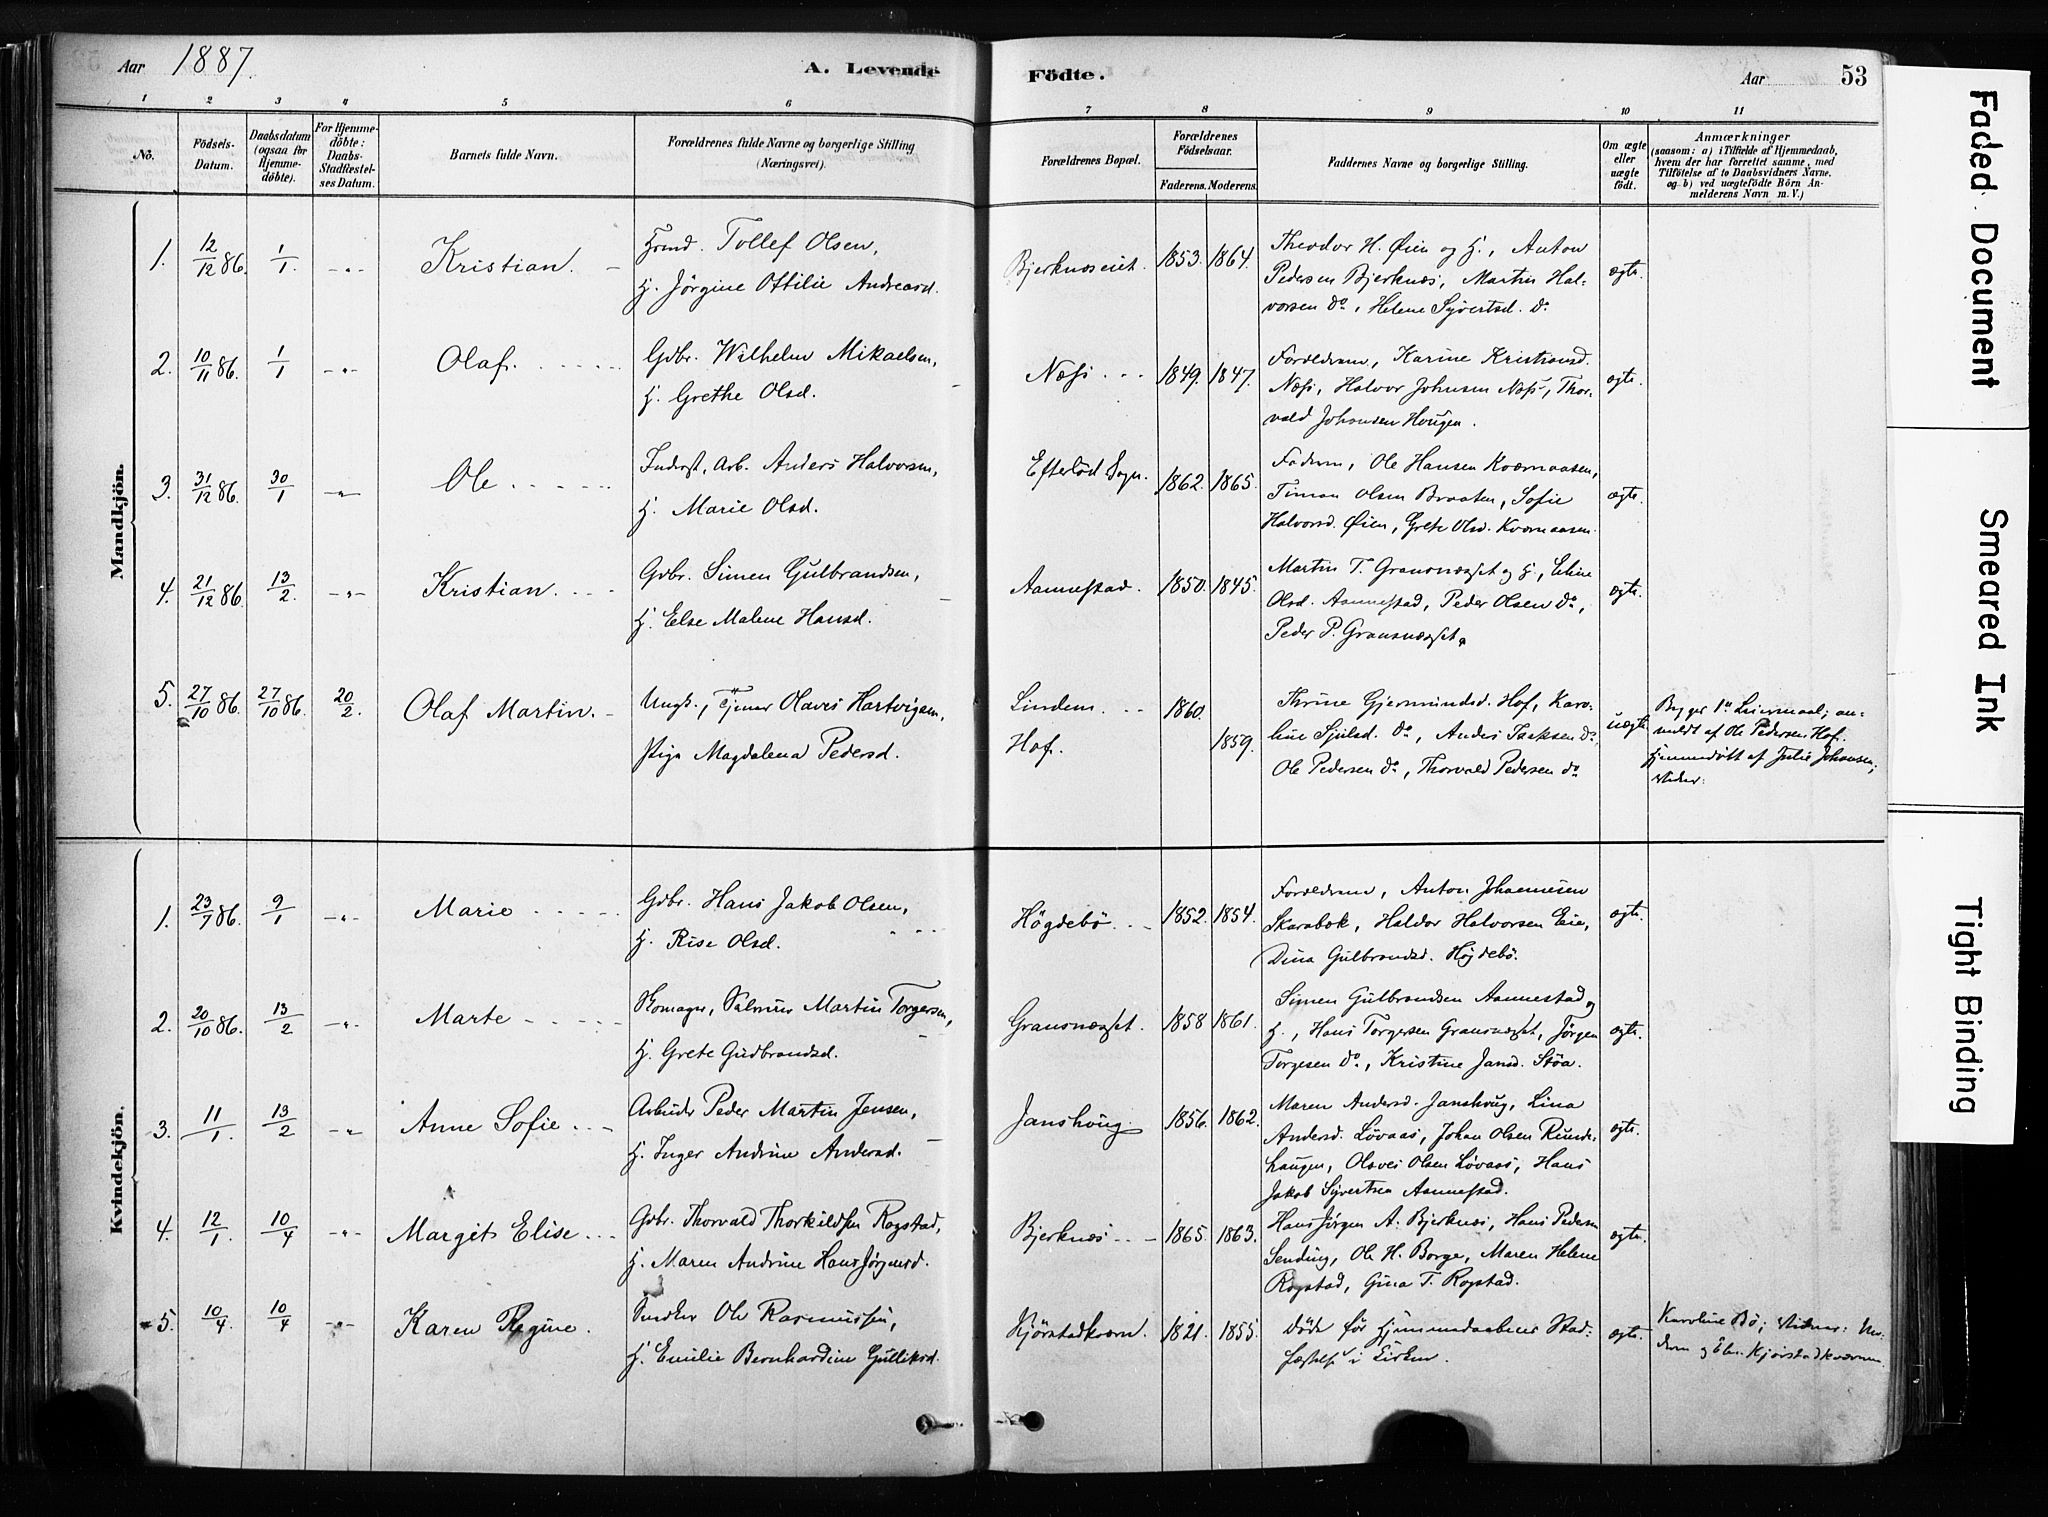 Aar 1887. A. Levende Födte. Aar 53
1 2 3 4 5 6 7 8 9 10 11
No.
Födsels-
Datum.
Daabsdatum
(ogsaa for
Hjemme-
döbte).
For Hjemme-
döbte:
Daabs-
Stadfæstel-
ses Datum.
Barnets fulde Navn.
Forældrenes fulde Navne og borgerlige Stilling
(Næringsvei).
Forældrenes Bopæl.
Forældrenes
Födselsaar.
Faderens. Moderens.
Faddernes Navne og borgerlige Stilling.
Om ægte
eller
uægte
födt.
Anmærkninger
(saasom: a) i Tilfælde af Hjemmedaab,
hvem der har forrettet samme, med
Tilföielse af to Daabsvidners Navne,
og b) ved uægtefödte Börn An-
melderens Navn m. V.)
Mandkjön.
1. 12/12 86. 1/1 -"- Kristian.
Tollef Olsen,
H. Jørgine Ottilie Andreasd.
Bjerknæseiet. 1853. 1864.
Theodor H. Øien og H., Anton
Pedersen Bjerknæs, Martin Hal-
vorsen do, Helene Syvertsd. do
ægte.
2. 10/11 86. 1/1 -"- Olaf.
Gdbr. Wilhelm Mikaelsen,
H. Grethe Olsd.
Næss 1849. 1847.
Forældrene, Karine Kristiansd.
Næss, Halvor Johnsen Næss, Thor-
vald Johansen Hougen.
ægte.
3. 31/12 86. 30/1 -"- Ole
Inderst, Arb. Anders Halvorsen,
H. Marie Olsd.
Efterlød Sogn. 1862. 1865.
Faderen, Ole Hansen Kværnaasen,
Timan Olsen Braaten, Sofie
Halvorsd. Øien, Grete Olsd. Kværnaasen.
ægte.
4. 21/12 86. 13/2. -"- Kristian.
Gdbr. Simen Gulbrandsen,
H. Else Malene Hansd.
Aannestad. 1850. 1845.
Martin T. Gransnægset og H., Eline
Olsd. Aannestad, Peder Olsen do,
Peder P. Gransnægset.
ægte.
5. 27/10 86. 27/10 86. 20/2. Olaf Martin.
Ungk., Tjener Olaves Hartvigsen,
Pige Magdalena Pedersd.
Lindem 1860.
Hof. 1859.
Thrine Gjermundsd. Hof, Karo-
line Sjulsd. do, Anders Isaksen do,
Ole Pedersen do, Thorvald Pedersen do
uægte
Begges 1ste Leiermaal; an-
meldt af Ole Pedersen Hof.
Hjemmedøbt af Julie Johansen;
Kvindekjön.
1. 23/7 86. 9/1 -"- Marie
Gdbr. Hans Jakob Olsen,
H. Rise Olsd.
Högdebö 1852. 1854.
Forældrene, Anton Johannesen
Skarabok, Haldor Halvorsen Eie,
Dina Gulbrandsd. Högdebö.
ægte.
2. 20/10 86. 13/2 -"- Marte
Skomager, Martin Torgersen,
H. Grete Gudbrandsd.
Gransnægset. 1858 1861.
Simen Gulbrandsen Aannestad og
H., Hans Torgersen Gransnægset, Jörgen
Torgesen do, Kristine Jansd. Støa.
ægte.
3. 11/1. 13/2 -"- Anne Sofie
Arbeider Peder Martin Jensen,
H. Inger Andrine Andersd.
Janshoug. 1856. 1862.
Maren Andersd. Janshoug, Lina
Andersd. Lövaas, Johan Olsen Runde-
haugen, Olaves Olsen Lövaas, Hans
Jakob Syvertsen Aannestad.
ægte.
4. 12/1. 10/4 -"- Margit Elise
Gdbr. Thorvald Thorkildsen Rogstad,
H. Maren Andrine Hans Jørgensd.
Bjerknæs 1865. 1863.
Hans Jørgen A. Bjerknæs, Hans Pedersen
Sending, Ole H. Borge, Maren Helene
Rogstad, Gina T. Rogstad.
ægte.
5. 10/4. 10/4 -"- Karen Regine.
Snedker Ole Rasmussen,
H. Emilie Bernhardine Gulliksd.
Kjörstadkværn. 1821. 1855.
Døde før Hjemmedaabens Stad-
fæstelse i Kirken.
ægte
Karoline Bö; Vidner: Mo-
deren og Kjørstadkværnen.
Faded Document
Smeared Ink
Tight Binding